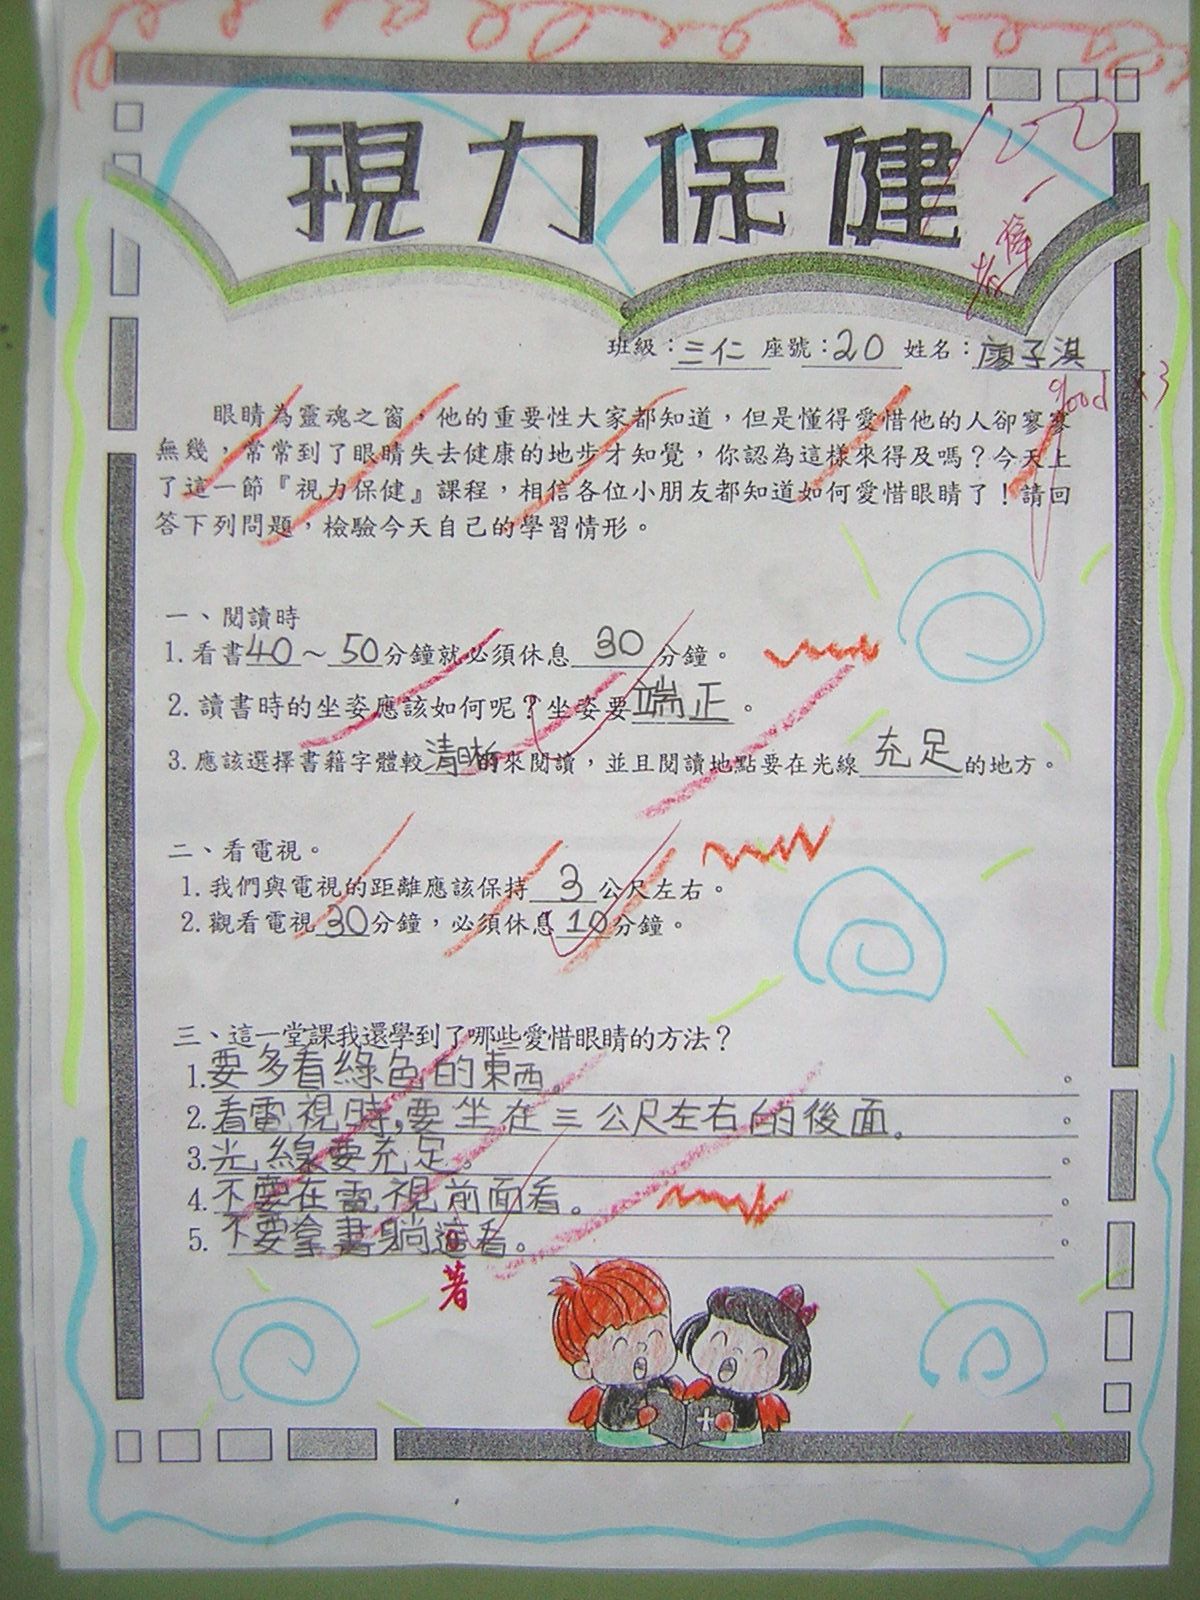 視力保健
班級：三仁 座號：20 姓名：廖子淇
good ×3
眼睛為靈魂之窗，他的重要性大家都知道，但是懂得愛惜他的人卻寥寥
無幾，常常到了眼睛失去健康的地步才知覺，你認為這樣來得及嗎？今天上
了這一節『視力保健』課程，相信各位小朋友都知道如何愛惜眼睛了！請回
答下列問題，檢驗今天自己的學習情形。
一、閱讀時
1. 看書40～50分鐘就必須休息30分鐘。
2. 讀書時的坐姿應該如何呢？坐姿要端正。
3. 應該選擇書籍字體較清晰的來閱讀，並且閱讀地點要在光線充足的地方。
二、看電視。
1. 我們與電視的距離應該保持3公尺左右。
2. 觀看電視30分鐘，必須休息10分鐘。
三、這一堂課我還學到了哪些愛惜眼睛的方法？
1. 要多看綠色的東西。。
2. 看電視時，要坐在三公尺左右的後面。。
3. 光線要充足。。
4. 不要在電視前面看。。
5. 不要拿書躺這看。。
著